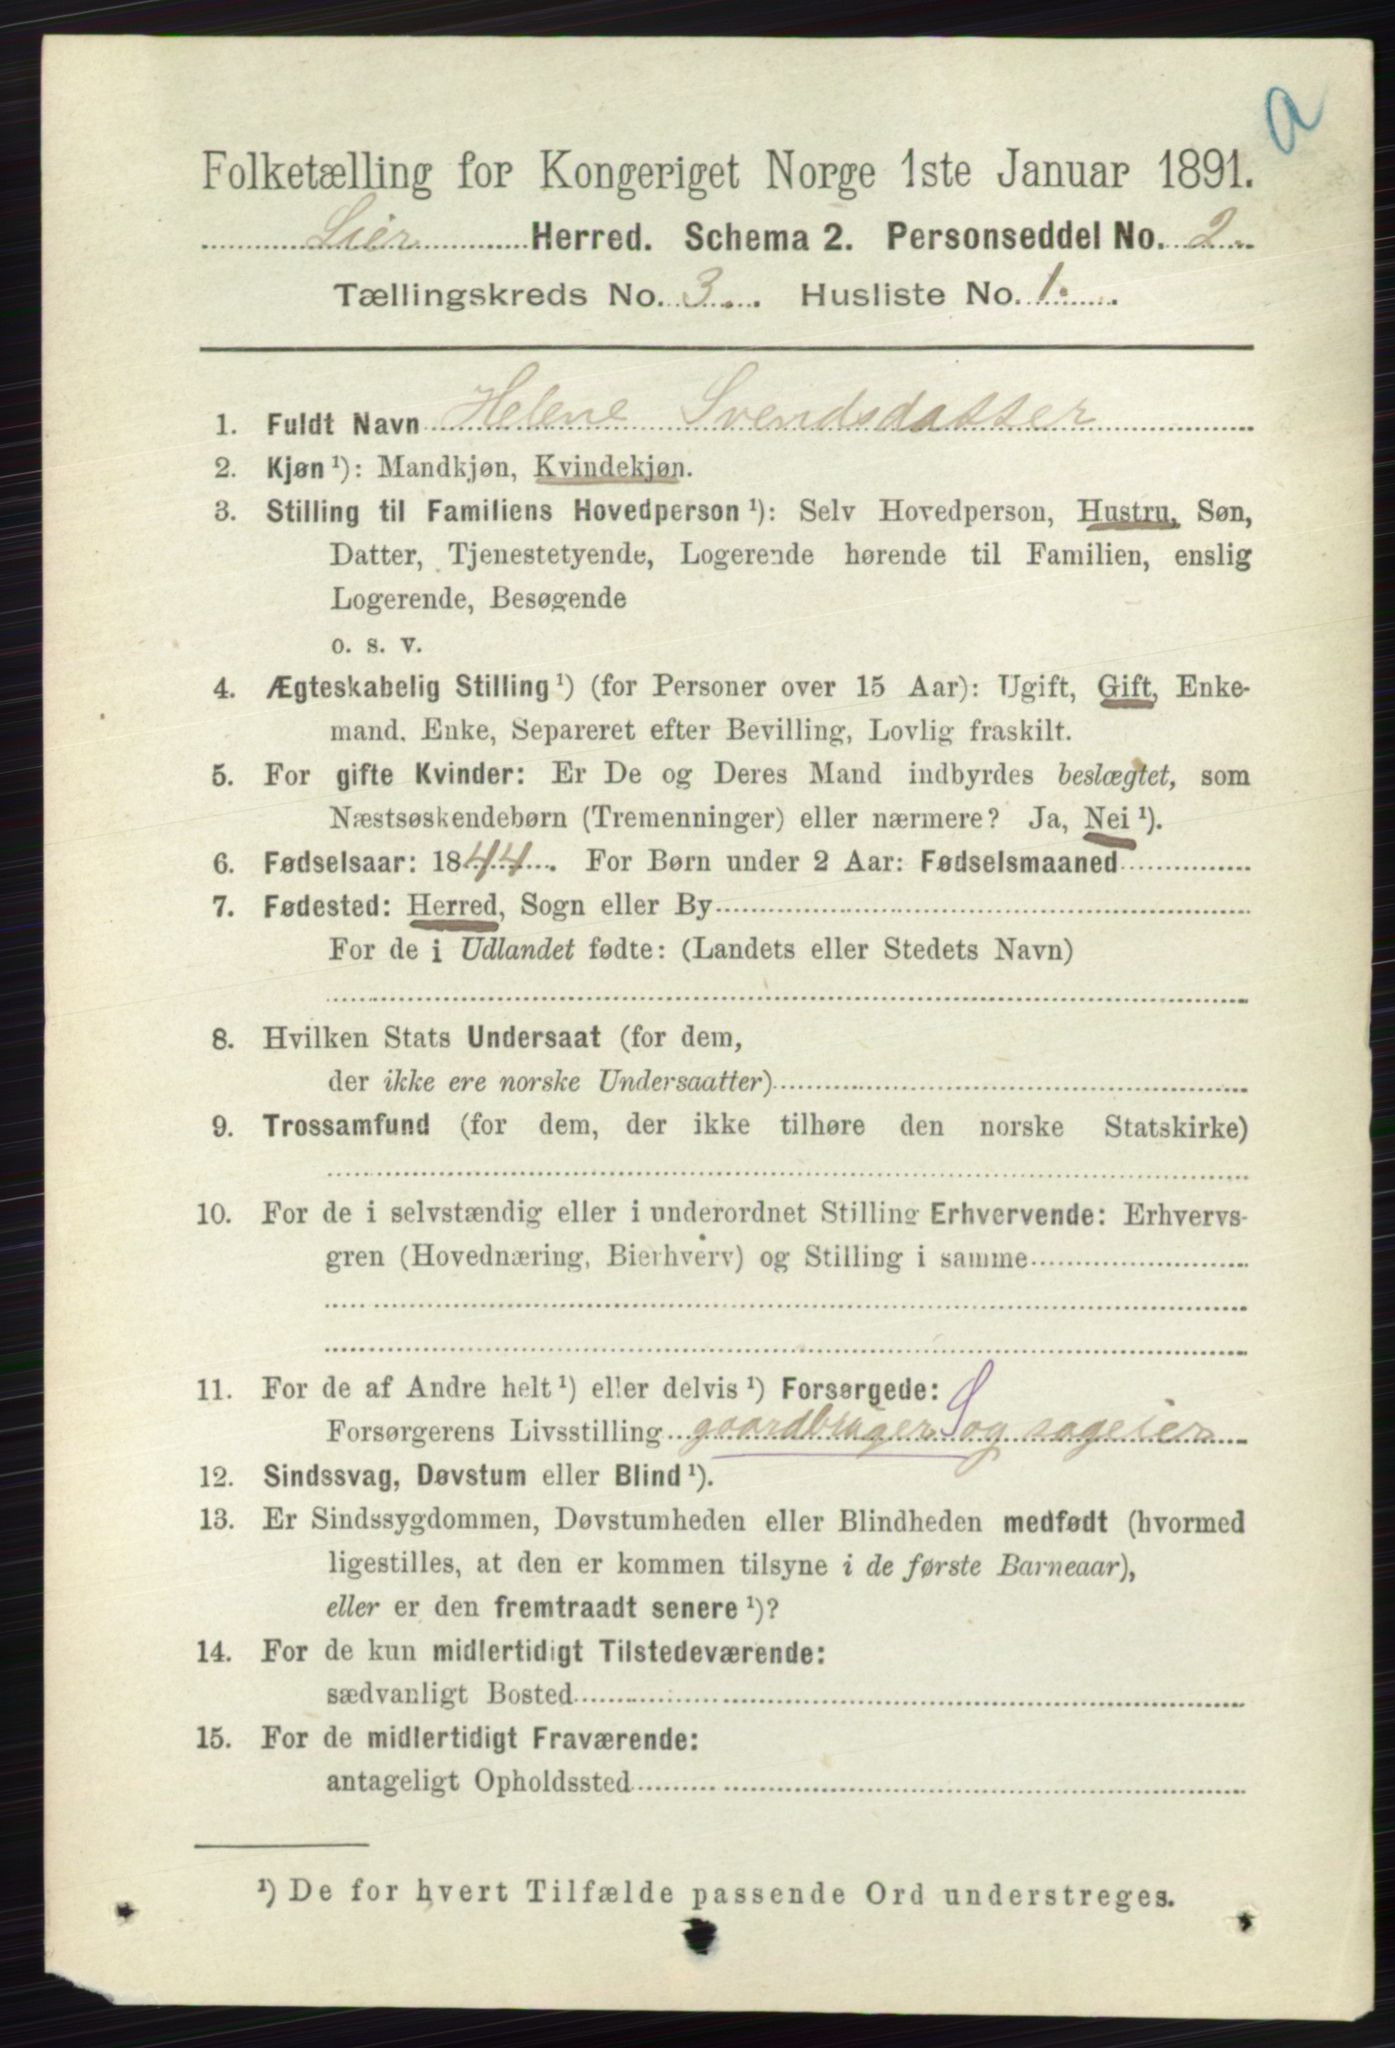 a
Folketælling for Kongeriget Norge 1ste Januar 1891.
Lier Herred. Schema 2. Personseddel No. 2.
Tællingskreds No. 3. Husliste No. 1.
1. Fuldt Navn Helene Svendsdatter
2. Kjøn ¹): Mandkjøn, Kvindekjøn.
3. Stilling til Familiens Hovedperson ¹): Selv Hovedperson, Hustru, Søn,
Datter, Tjenestetyende, Logerende hørende til Familien, enslig
Logerende, Besøgende
o. s. v.
4. Ægteskabelig Stilling ¹) (for Personer over 15 Aar): Ugift, Gift, Enke-
mand. Enke, Separeret efter Bevilling, Lovlig fraskilt.
5. For gifte Kvinder: Er De og Deres Mand indbyrdes beslægtet, som
Næstsøskendebørn (Tremenninger) eller nærmere? Ja, Nei ¹).
6. Fødselsaar: 1844. For Børn under 2 Aar: Fødselsmaaned
7. Fødested: Herred, Sogn eller By
For de i Udlandet fødte: (Landets eller Stedets Navn)
8. Hvilken Stats Undersaat (for dem,
der ikke ere norske Undersaatter)
9. Trossamfund (for dem, der ikke tilhøre den norske Statskirke)
10. For de i selvstændig eller i underordnet Stilling Erhvervende: Erhvervs-
gren (Hovednæring, Bierhverv) og Stilling i samme
11. For de af Andre helt ¹) eller delvis ¹) Forsørgede:
Forsørgerens Livsstilling gaardbruger og sageier
12. Sindssvag, Døvstum eller Blind ¹).
13. Er Sindssygdommen, Døvstumheden eller Blindheden medfødt (hvormed
ligestilles, at den er kommen tilsyne i de første Barneaar),
eller er den fremtraadt senere ¹)?
14. For de kun midlertidigt Tilstedeværende:
sædvanligt Bosted
15. For de midlertidigt Fraværende:
antageligt Opholdssted
¹) De for hvert Tilfælde passende Ord understreges.